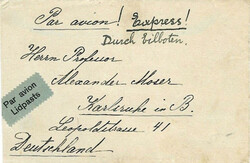 Par avion! Express!
Durch Eilboten.
Herrn Professor
Alexander Moser
Par avion
Lidpasts
Karlsruhe in B.
Leopoldstrasse 41
Deutschland